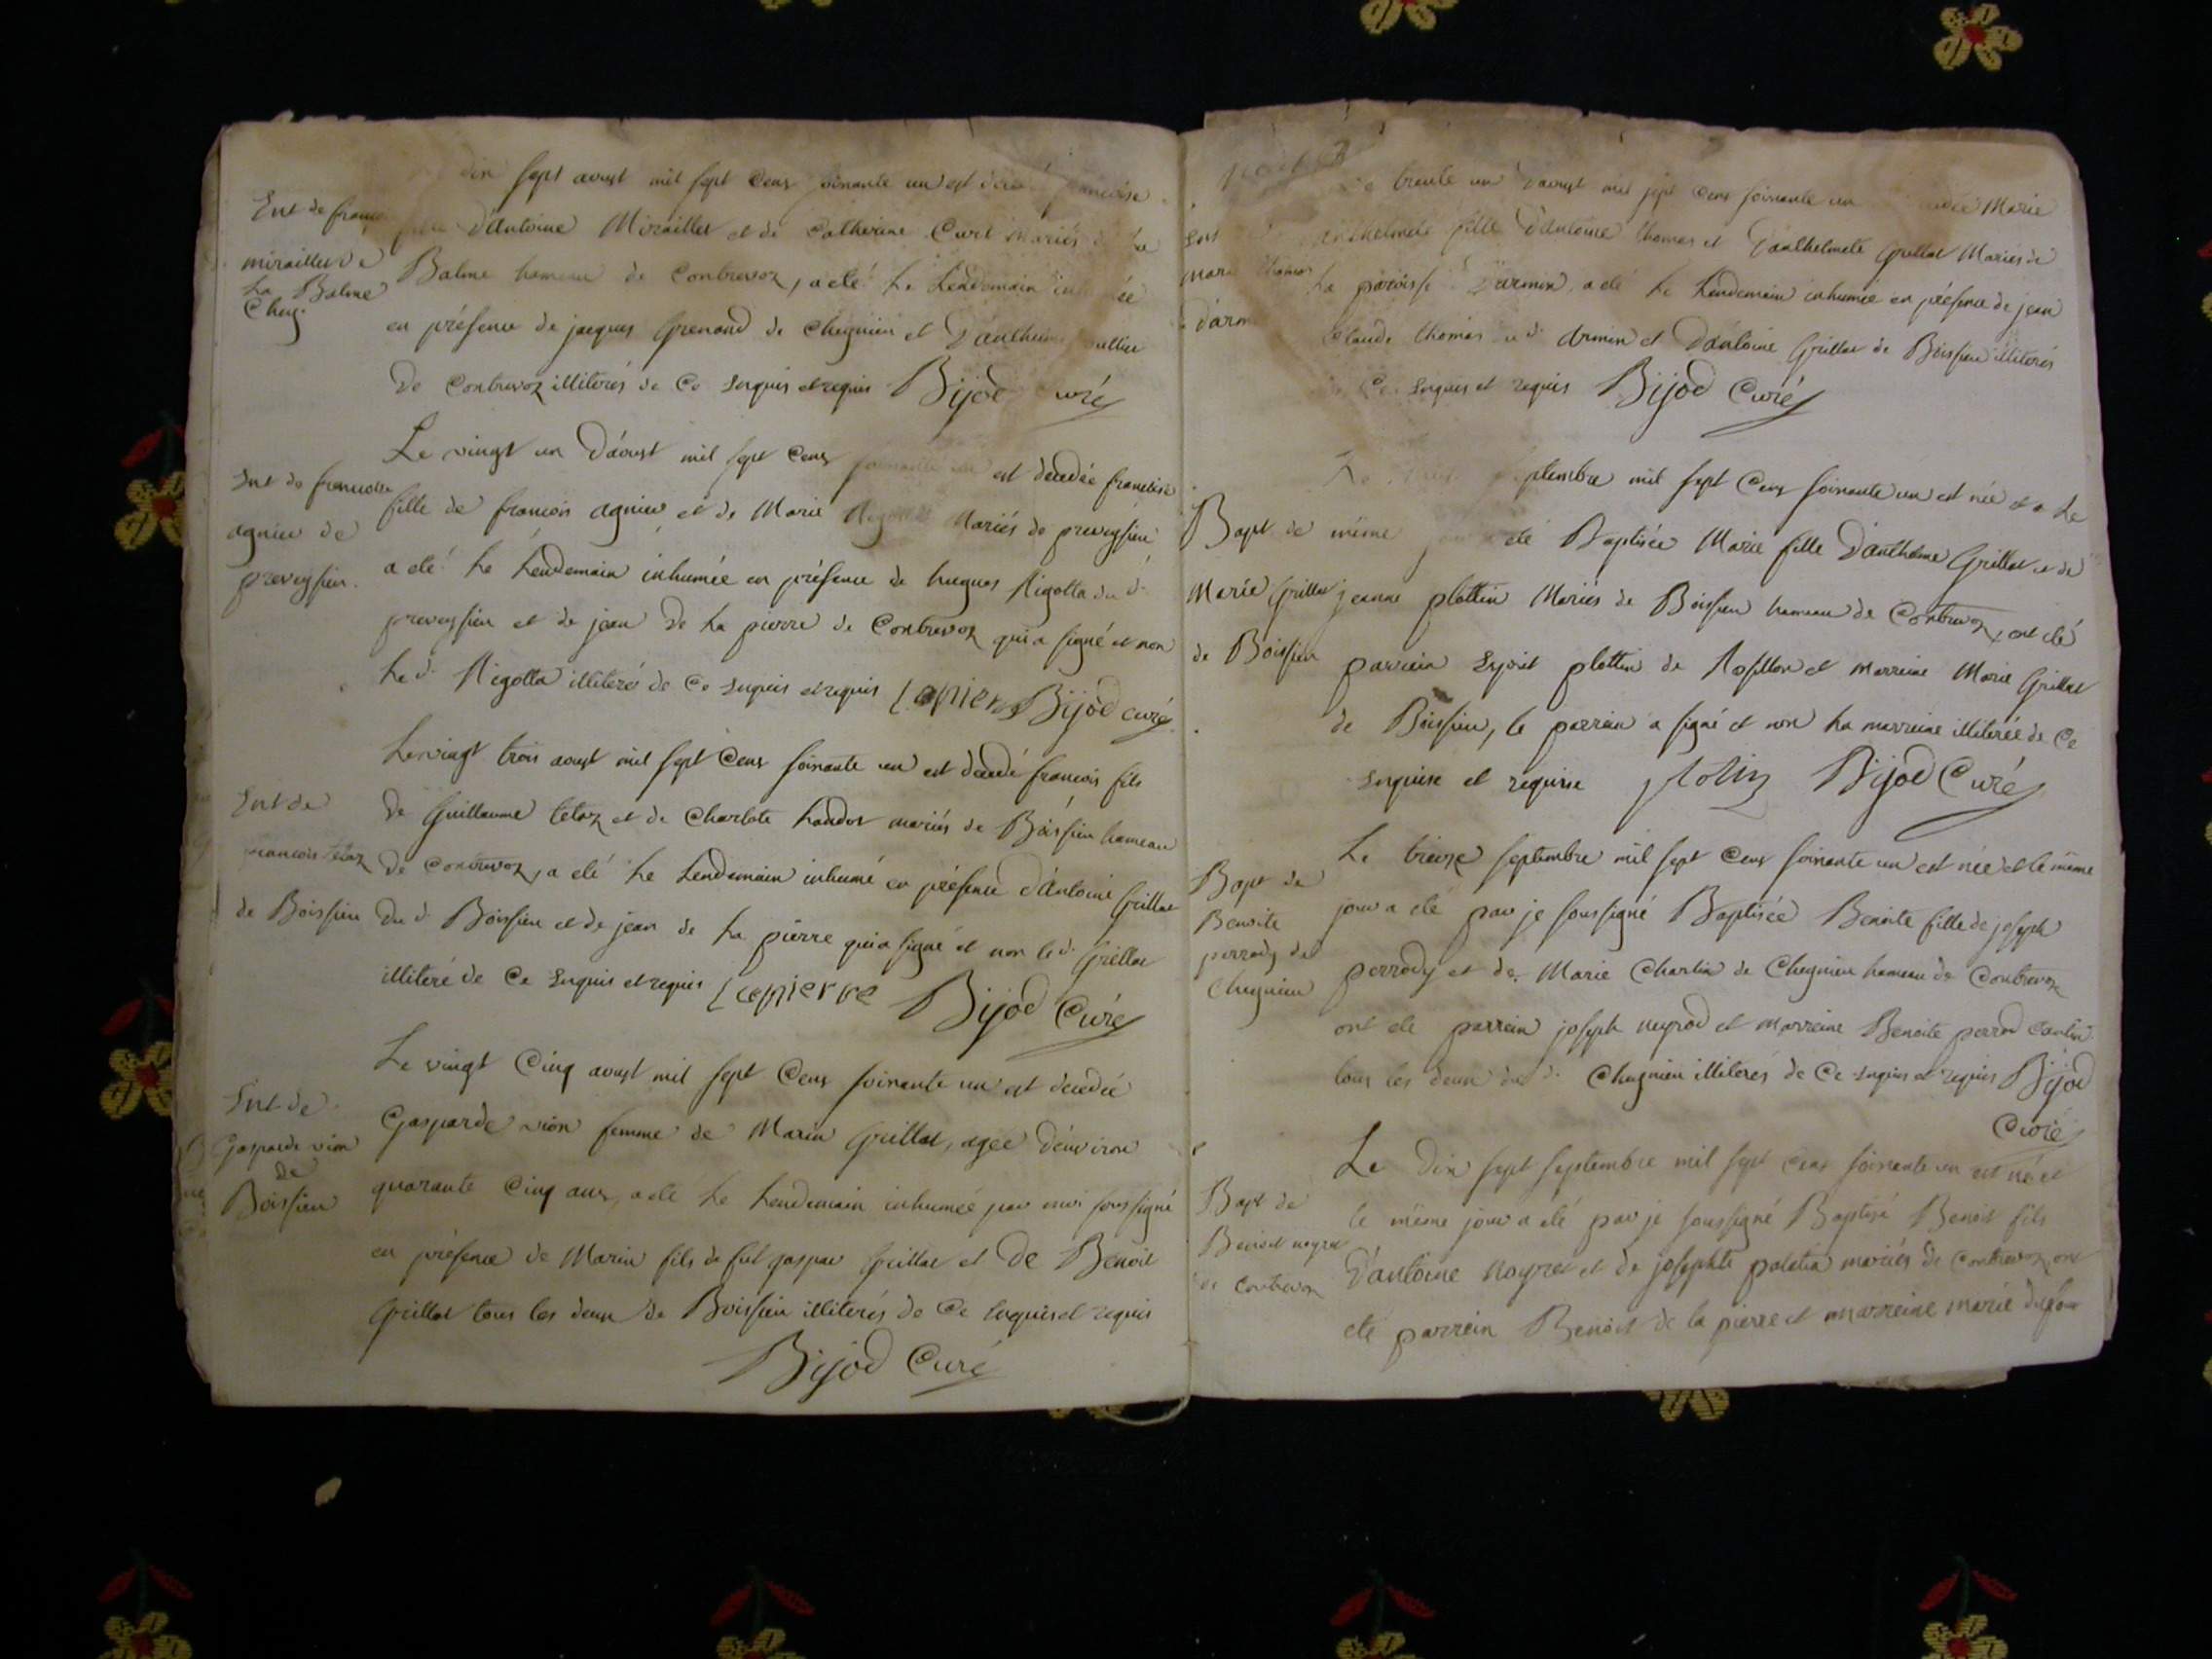 dix sept aoust mil sept Cens soixante un est francoise
Ent de
d'Antoine Miraillet et de Catherine Curt mariés
miraillet de
Balme hameau de Contrevoz, a eté le Lendemain
La Balme
Cheg.
en présence de jacques Grenand de Chegnieu et
De Contrevoz illiterés de Ce Enquis et requis Bijod curé
Le vingt un D'aoust mil sept Cens est decedée francoise
Ent de francoise
fille de francois agnieu et de Marie Mariés de preveysieu
agnieu de
preveysieu.
a eté Le Lendemain inhumée en présence de hugues Rigotta du d.
preveysieu et de jean De La pierre de Contrevoz qui a signé et non
Le d. Rigotta illiteré de Ce Enquis et requis Lapierre Bijod curé
Le vingt trois aoust mil sept Cens soixante un est decedé francois fils
Ent de
de Guillaume tetaz et de Charlote mariés de Boissieu hameau
francois tetaz
de Contrevoz, a eté Le Lendemain inhumé en présence d'Antoine Grillat
de Boissieu
Du d. Boissieu et de jean de La pierre qui a signé et non le d. Grillat
illiteré de Ce Enquis et requis Lapierre Bijod Curé
Le vingt Cinq aoust mil sept Cens soixante un est decedée
Ent de
Gasparde vion femme de Marin Grillat, agée d'environ
Gasparde vion
de
Boissieu
quarante Cinq ans, a eté Le Lendemain inhumée par moi soussigné
en présence de Marin fils de fut gaspar Grillat et de Benoit
Grillat tous les deux de Boissieu illiterés de Ce Enquis et requis
Bijod Curé
trente un d'aoust mil sept Cens soixante un Marie
Ent
anthelmete fille D'antoine thomas et D'anthelmete Grillat Mariés de
thomas
La paroisse D'armin, a eté Le Lendemain inhumée en présence de jean
Claude thomas d'armin et D'antoine Grillat de Boissieu illiterés
Ce Enquis et requis Bijod Curé
septembre mil sept Cens soixante un est née et a Le
Bapt de
même jour a eté Baptisée Marie fille D'anthelme Grillat et de
Marie Grillat
jeanne plottin Mariés de Boissieu hameau de Contrevoz, ont eté
de Boissieu
parrein Esprit plottin de Rossillon et marreine Marie Grillat
de Boissieu, le parrain a signé et non La marreine illiterée de Ce
Enquise et requise plotin Bijod Curé
Le treize septembre mil sept Cens soixante un est née et le même
Bapt de
jour a eté par je soussigné Baptisée Benoite fille de joseph
Benoite
perrody de
perrody et de Marie Charlin de Chegnieu hameau de Contrevoz
Chegnieu
ont eté parrein joseph neyrod et marreine Benoite perrod
tous les deux du d. Chegnieu illiterés de Ce Enquis et requis Bijod
Curé
Le Dix sept septembre mil sept Cens soixante un est né et
Bapt de
le même jour a eté par je soussigné Baptisé Benoit fils
Benoit neyret
D'antoine neyret et de josephte mariés de Contrevoz ont
de Contrevoz
eté parrein Benoit de la pierre et marreine marie dufour